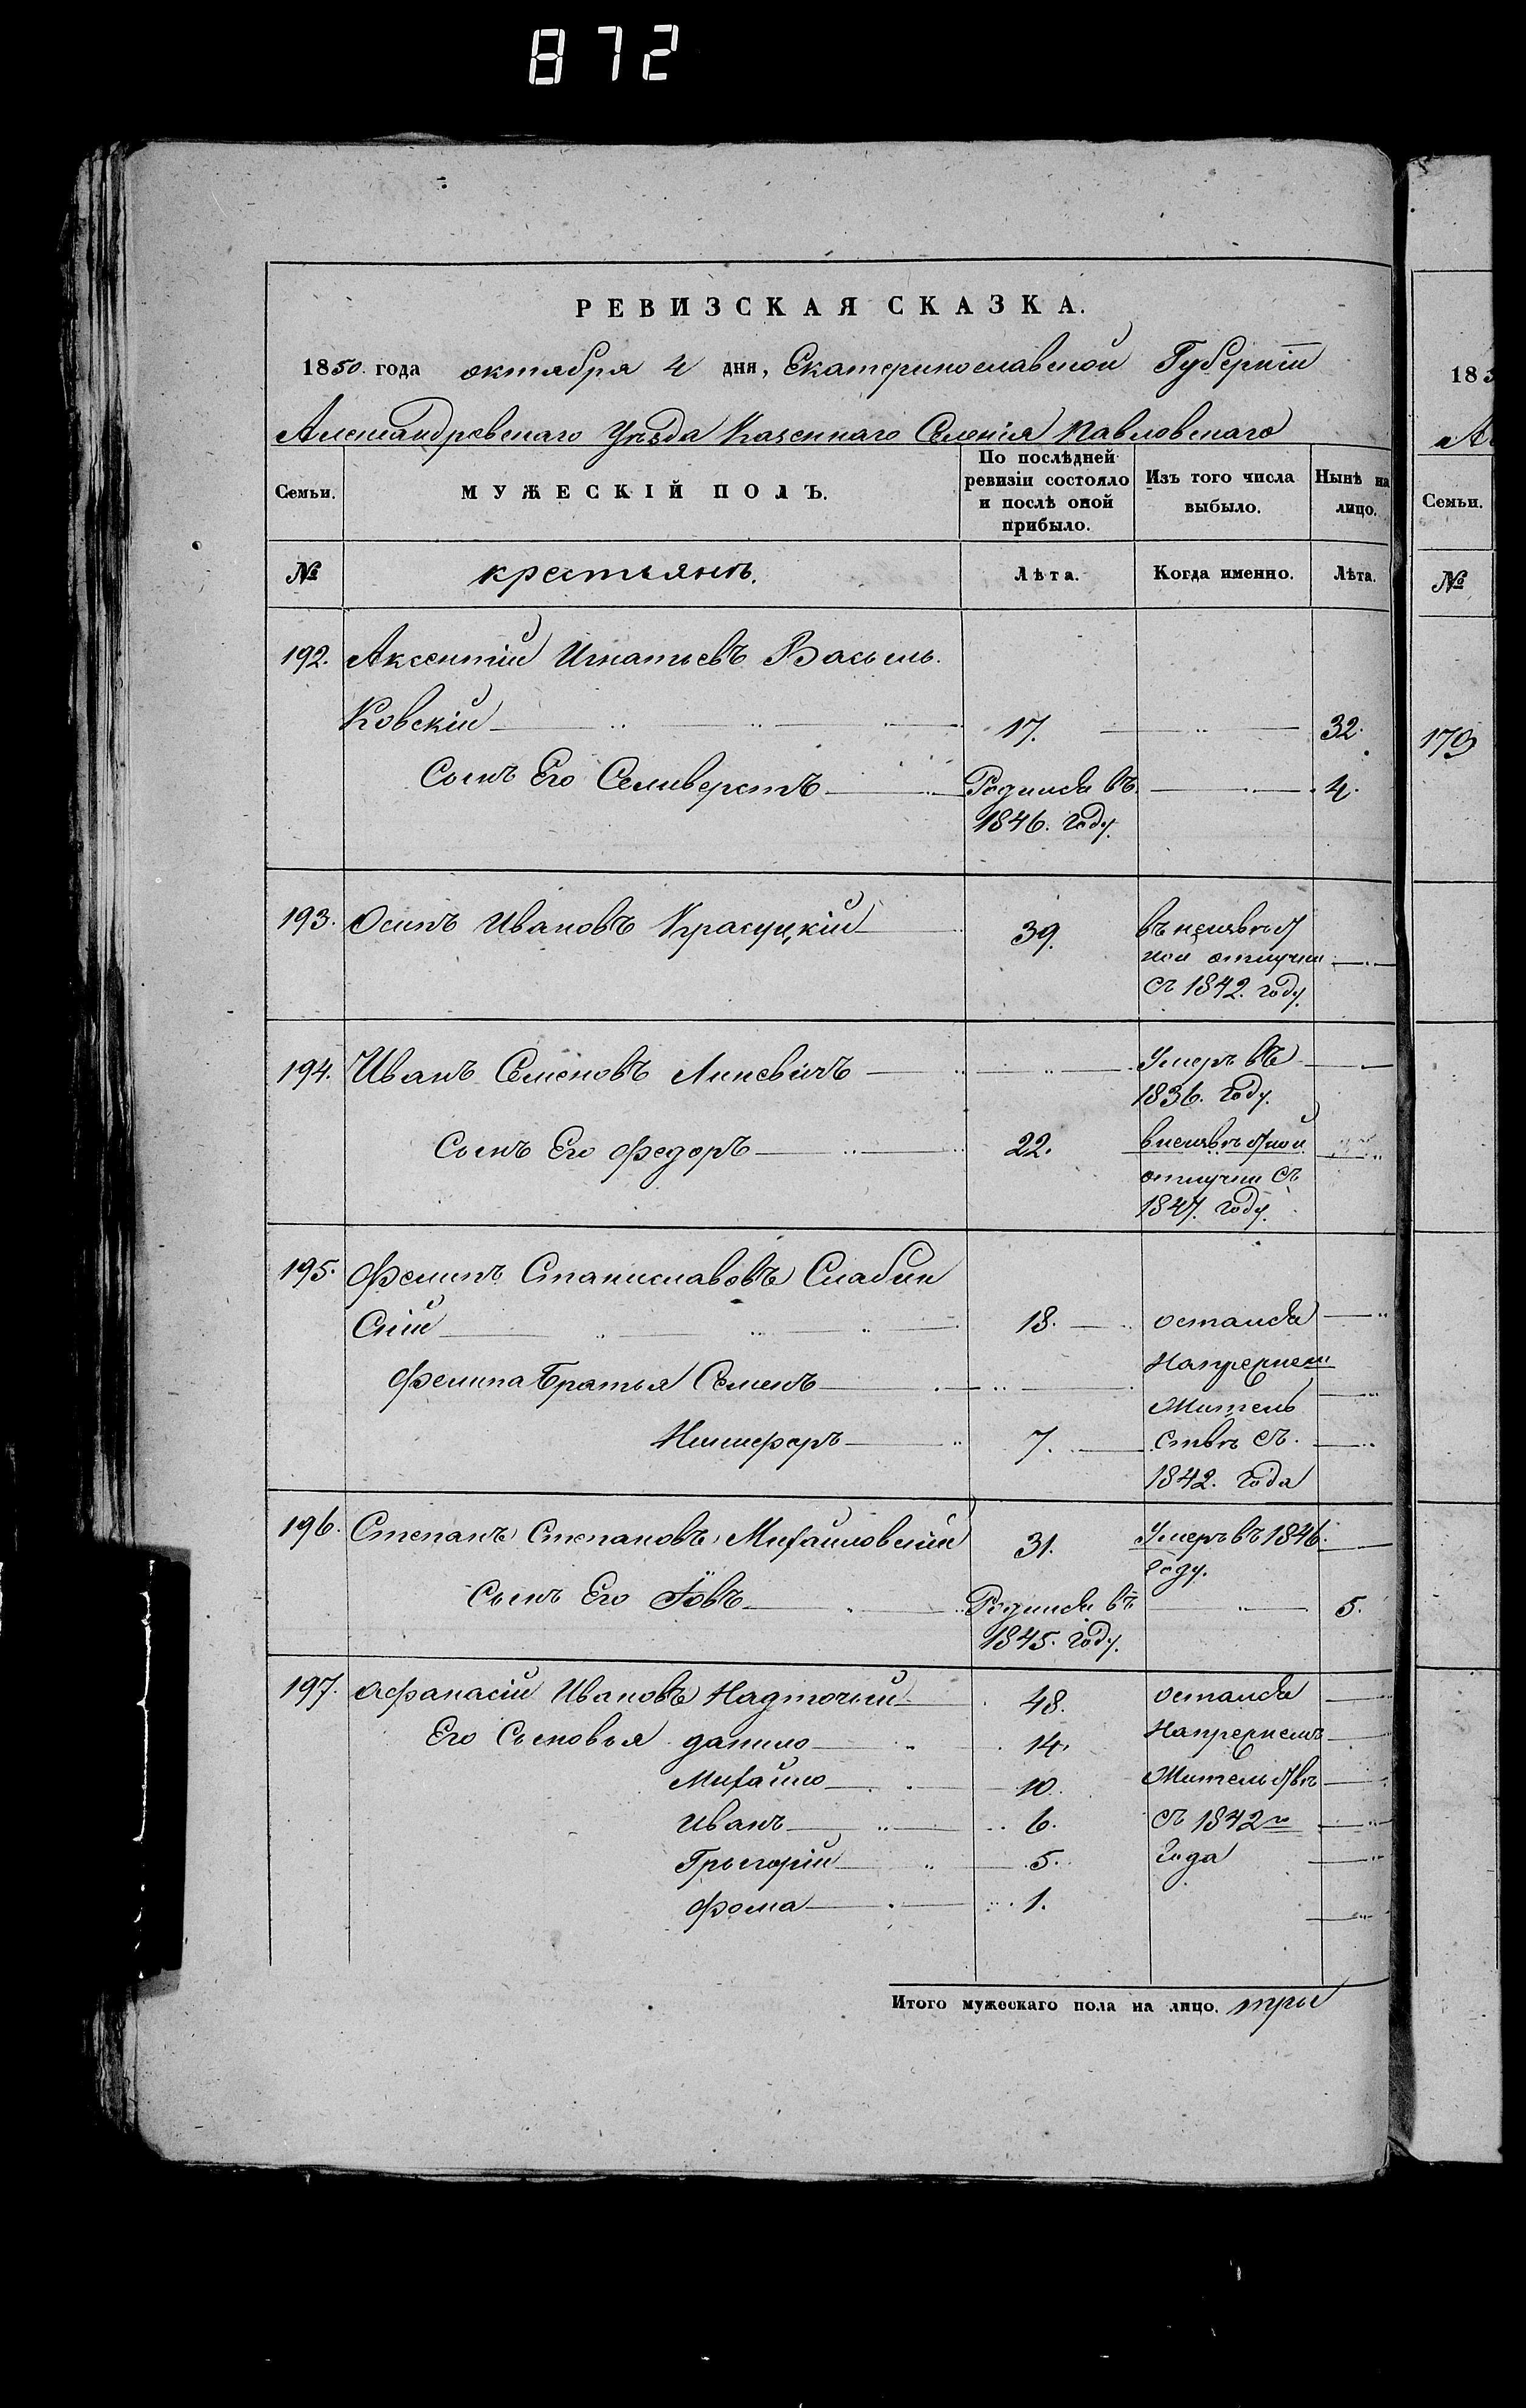 872
РЕВИЗСКАЯ СКАЗКА.
1850. года октября 4 дня, Екатеринославской Губерніи
Александровскаго Уѣзда Казеннаго Селенія Павловскаго
Семьи.
МУЖЕСКІЙ ПОЛЪ.
По послѣдней ревизіи состояло и послѣ оной прибыло.
Изъ того числа выбыло.
Нынѣ на лицо.
№ крестьянъ. Лѣта. Когда именно. Лѣта.
192. Аксентій Игнатьевъ Василь
ковскій 17. 32.
Сынъ Его Селиверстъ Родился въ 4.
1846. году.
193. Осипъ Ивановъ Красуцкій 39. въ неизвѣст
ной отлучки
съ 1842. году.
194. Иванъ Семеновъ Линевичъ Умеръ въ
1836. году.
Сынъ Его Федоръ 22. в неизвѣстной
отлучки съ
1847. году.
195. Филипъ Станиславовъ Слабин
скій 18. остался
Напрежнем
Филипа Братья Семенъ
Житель
Никифоръ 7. ствѣ съ.
1842. года
196. Степанъ Степановъ Михайловскій 31. Умеръ въ 1846.
году.
Сынъ Его Іовъ Родился въ 5.
1845. году.
197. Афанасій Ивановъ Надточій 48. остался
Его Сыновья данило 14. Напрежнемъ
Михайло 10. Жительствѣ
Иванъ 6. съ 1842го
Грыгорій 5. года
Фома 1.
Итого мужескаго пола на лицо. тры
185
А
Семьи.
№
179